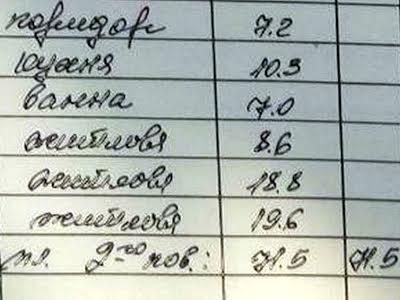 коридор 7.2
кухня 10.3
ванна 7.0
житлова 8.6
житлова 18.8
житлова 19.6
пл. 2-го пов.: 71.5 71.5